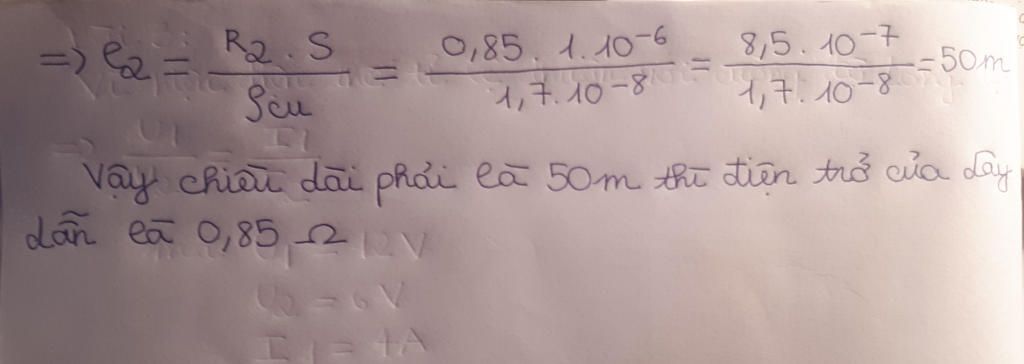 => l₂ = R₂ . S / ρcu = 0,85 . 1 . 10⁻⁶ / 1,7 . 10⁻⁸ = 8,5 . 10⁻⁷ / 1,7 . 10⁻⁸ = 50m
Vậy chiều dài phải là 50m thì điện trở của dây
dẫn là 0,85 Ω
12V
U₂ = 6V
I₁ = 4A